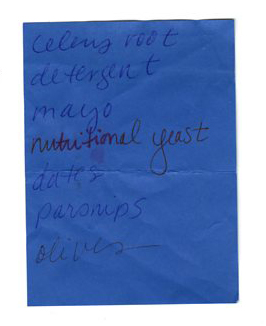 celery root
detergent
mayo
nutritional yeast
dates
parsnips
olives